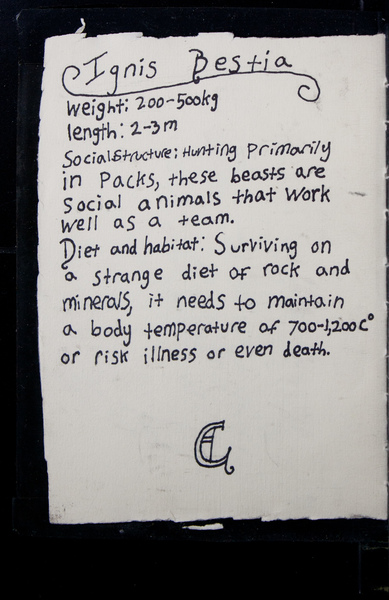 Ignis Bestia
weight: 200-500kg
length: 2-3m
Social Structure: Hunting Primarily
in Packs, these beasts are
social animals that work
well as a team.
Diet and habitat: Surviving on
a strange diet of rock and
minerals, it needs to maintain
a body temperature of 700-1,200C°
or risk illness or even death.